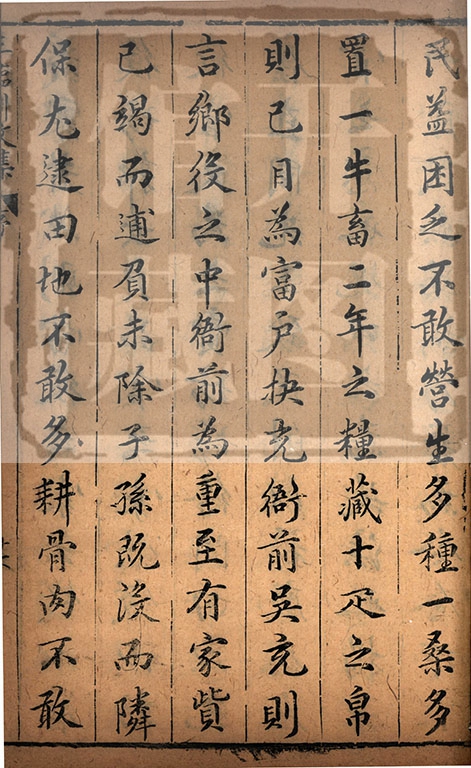 民益困乏不敢營生多種一桑多
置一牛畜二年之糧藏十疋之帛
則已目為富户抉充衙前吳充則
言鄉役之中衙前為重至有家貲
已竭而逋負未除子孫既沒而隣
保尤逮田地不敢多耕骨肉不敢